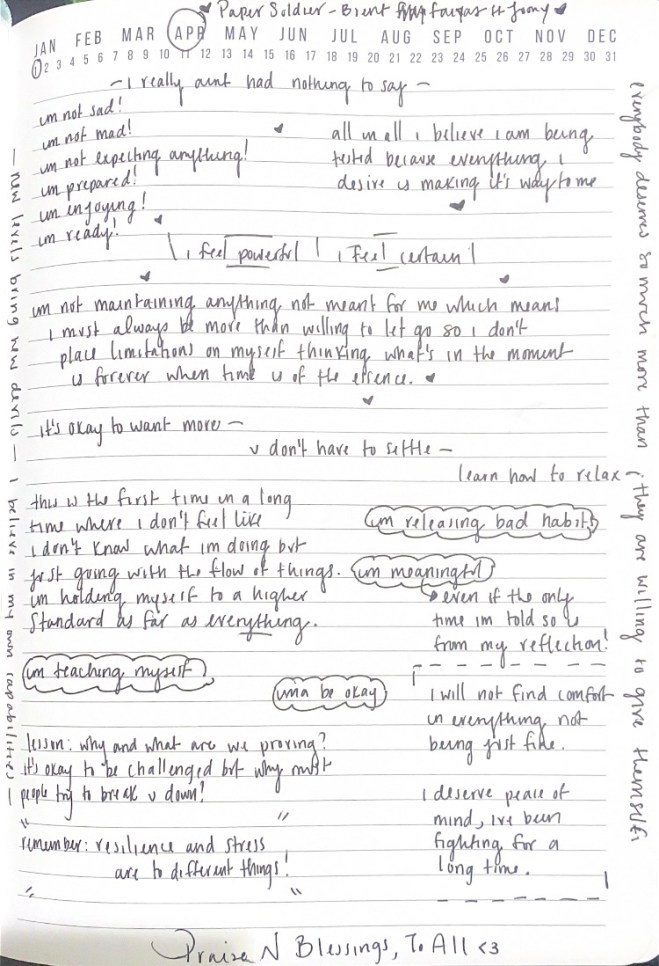 Paper Soldier - Brent Faiyaz ft Joony
JAN FEB MAR APR MAY JUN JUL AUG SEP OCT NOV DEC
1 2 3 4 5 6 7 8 9 10 11 12 13 14 15 16 17 18 19 20 21 22 23 24 25 26 27 28 29 30 31
~ I really aint had nothing to say ~
im not sad!
im not mad!
im not expecting anything!
im prepared!
im enjoying!
im ready!
all in all i believe i am being
tested because everything i
desire is making it's way to me
i feel powerful
i feel certain
im not maintaining anything not meant for me which means
i must always be more than willing to let go so i don't
place limitations on myself thinking what's in the moment
is forever when time is of the essence.
it's okay to want more -
u don't have to settle -
learn how to relax
this is the first time in a long
time where i don't feel like
i don't know what im doing but
just going with the flow of things.
im holding myself to a higher
standard as far as everything.
im releasing bad habits
im meaningful
even if the only
time im told so is
from my reflection!
im teaching myself
imma be okay
I will not find comfort
in everything not
being just fine.
I deserve peace of
mind, ive been
fighting for a
long time.
lesson: why and what are we proving?
it's okay to be challenged but why must
people try to break u down!
" "
remember: resilience and stress
are to different things!
" "
- New levels bring new devils - I believe in my own capabilities -
everybody deserves so much more than they are willing to give themself!
Praise N Blessings, To All <3